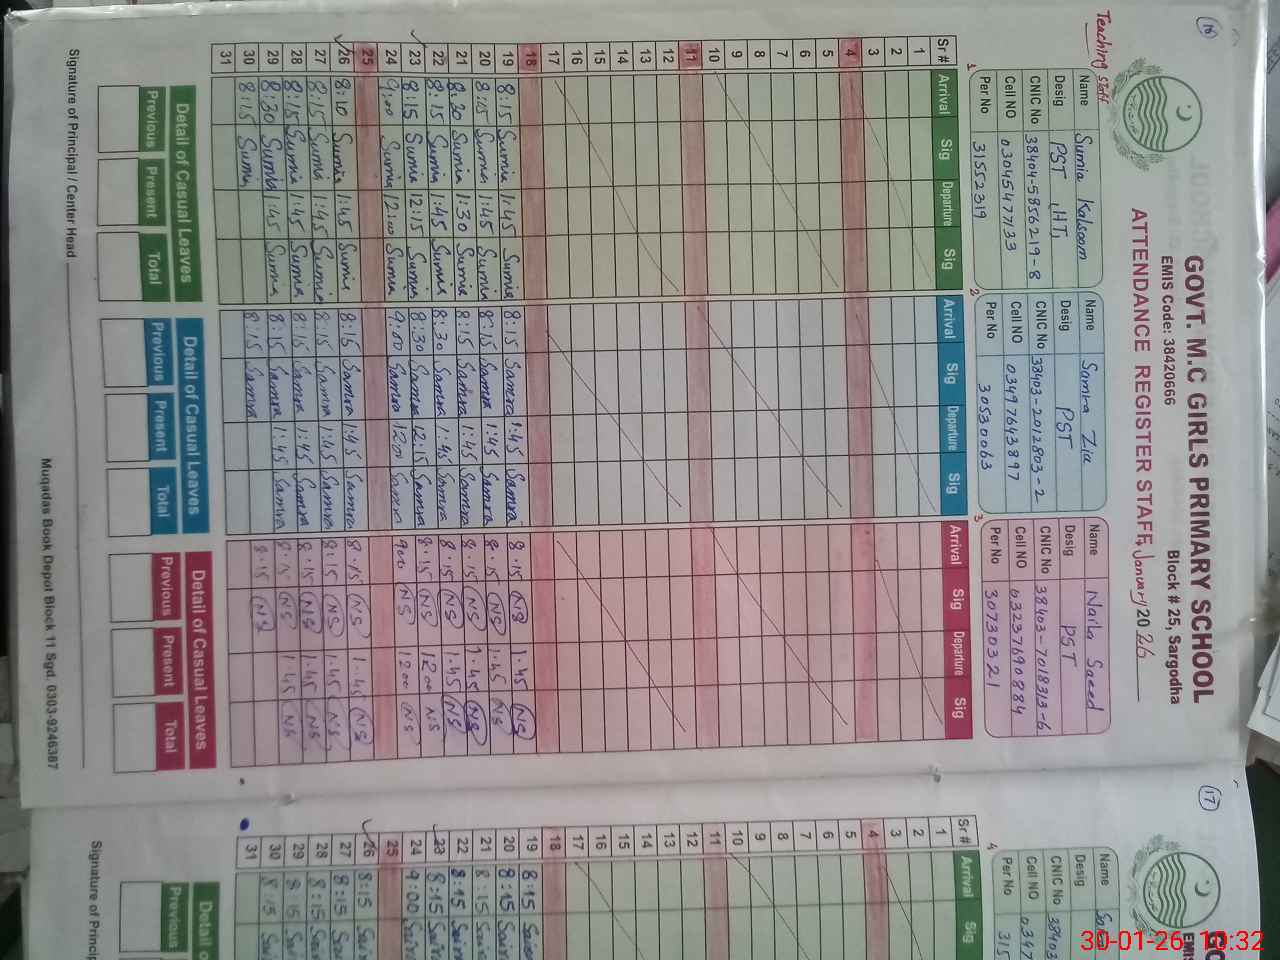 16
Teaching staff
GOVT. M.C GIRLS PRIMARY SCHOOL
EMIS Code: 38420666 Block # 25, Sargodha
ATTENDANCE REGISTER STAFF, January 2026
1
Name Sumia Kalsoom
Desig PST (HT)
CNIC No 38404-5856219-8
Cell NO 03045477133
Per No 31552319
2
Name Samra Zia
Desig PST
CNIC No 38403-2012803-2
Cell NO 03497643897
Per No 30530063
3
Name Naila Saeed
Desig PST
CNIC No 38403-7018313-6
Cell NO 03237690884
Per No 30730321
Sr # Arrival Sig Departure Sig Arrival Sig Departure Sig Arrival Sig Departure Sig
1
2
3
4
5
6
7
8
9
10
11
12
13
14
15
16
17
18
19 8:15 Sumia 1:45 Sumia 8:15 Samra 1:45 Samra 8:15 NS 1:45 NS
20 8:15 Sumia 1:45 Sumia 8:15 Samra 1:45 Samra 8:15 NS 1:45 NS
21 8:20 Sumia 1:30 Sumia 8:15 Samra 1:45 Samra 8:15 NS 1:45 NS
22 8:15 Sumia 1:45 Sumia 8:30 Samra 1:45 Samra 8:15 NS 1:45 NS
23 8:15 Sumia 12:15 Sumia 8:30 Samra 12:15 Samra 8:15 NS 1200 NS
24 9:00 Sumia 12:00 Sumia 9:00 Samra 1200 Samra 900 NS 1200 NS
25
26 8:10 Sumia 1:45 Sumia 8:15 Samra 1:45 Samra 8:15 NS 1:45 NS
27 8:15 Sumia 1:45 Sumia 8:15 Samra 1:45 Samra 8:15 NS 1:45 NS
28 8:15 Sumia 1:45 Sumia 8:15 Samra 1:45 Samra 8:15 NS 1:45 NS
29 8:30 Sumia 1:45 Sumia 8:15 Samra 1:45 Samra 8:15 NS 1:45 NS
30 8:15 Sumia 8:15 Samra 8:15 NS
31
Detail of Casual Leaves Detail of Casual Leaves Detail of Casual Leaves
Previous Present Total Previous Present Total Previous Present Total
Signature of Principal / Center Head
Muqadas Book Depot Block 11 Sgd. 0303-9246387
17
GO
EMIS
4
Name
Desig
CNIC No 38403
Cell NO 0347
Per No 315
Sr # Arrival Sig
1
2
3
4
5
6
7
8
9
10
11
12
13
14
15
16
17
18
19 8:15
20 8:15
21 8:15
22 8:15
23 8:15
24 9:00
25
26 8:15
27 8:15
28 8:15
29 8:15
30 8:15
31
Detail
Previous
Signature of Princi
30-01-26, 10:32